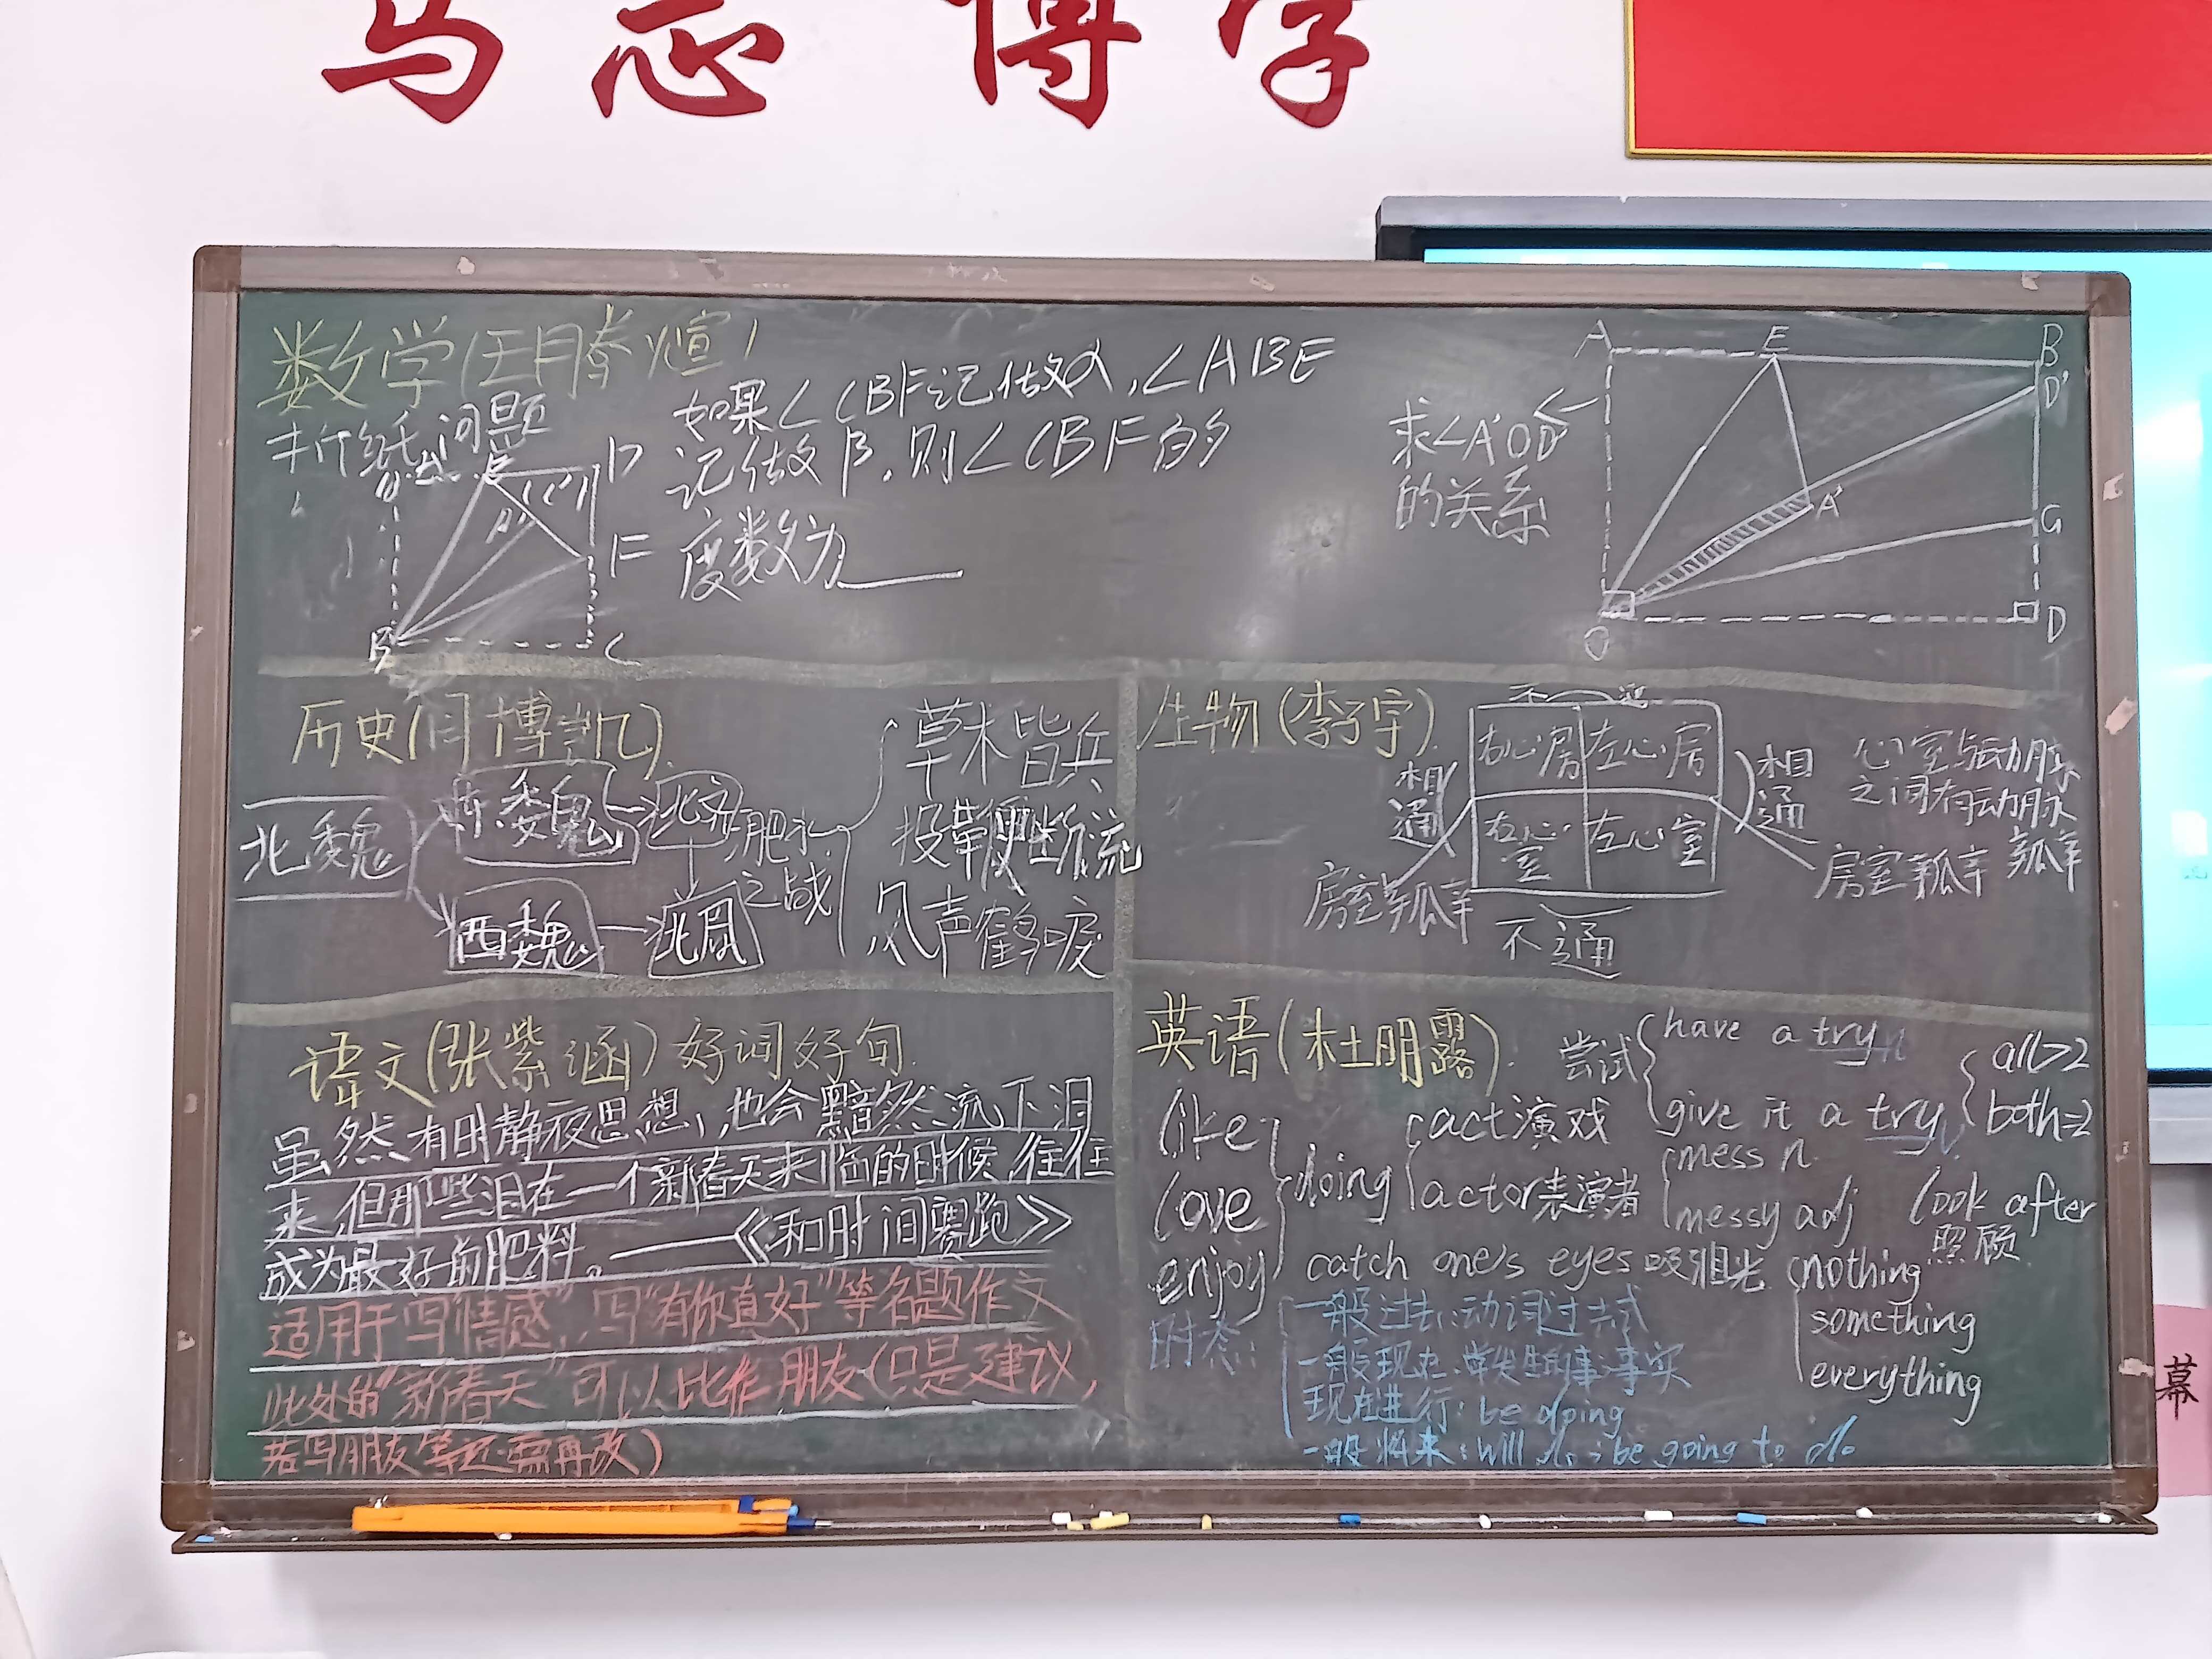 博学
数学(王腾煊)
折纸问题
如果∠CBF记做α,∠ABE
记做β,则∠CBF的
度数为____
E
D
A'
(C')
F
B
C
求∠A'OD'
的关系
A
E
B
D'
A'
G
O
D
历史(闫博凯)
北魏
东魏
北齐
西魏
北周
肥水
之战
草木皆兵
投鞭断流
风声鹤唳
生物(李子宇)
不通
右心房
左心房
右心
室
左心室
相
通
相
通
房室瓣
房室瓣
不通
心室与动脉
之间有动脉
瓣
语文(张紫涵)好词好句.
虽然有时静夜思想,也会黯然流下泪
来,但那些泪在一个新春天来临的时候,往往
成为最好的肥料。——《和时间零跑》
适用于写“情感”,写“有你真好”等名题作文
此处的“新春天”可以比作朋友(只是建议,
若写朋友等还需再改)
英语(杜明露).
尝试
have a try n
give it a try
all>2
both=2
like
love
enjoy
doing
act演戏
actor表演者
mess n.
messy adj
look after
照顾
catch one's eyes 吸引目光
nothing
something
everything
时态:
一般过去:动词过去式
一般现在:常发生的事,事实
现在进行:be doing
一般将来:will do;be going to do
幕